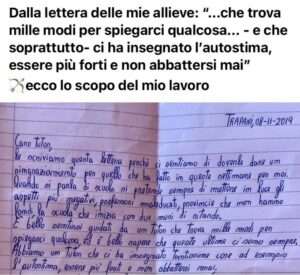 Dalla lettera delle mie allieve: “...che trova
mille modi per spiegarci qualcosa... - e che
soprattutto- ci ha insegnato l’autostima,
essere più forti e non abbattersi mai”
ecco lo scopo del mio lavoro
TRAPANI, 08-11-2019
Caro Tutor,
le scriviamo questa lettera perché ci sentiamo di doverle dare un
ringraziamento per quello che ha fatto in queste settimane per noi.
Quando si parla di scuola si pensa sempre di mettere in luce gli
aspetti più negativi, professori maleducati, provincie che non hanno
fondi, la scuola che inizia con due mesi di ritardo.
È bello sentirsi guidati da un Tutor che trova mille modi per
spiegarci qualcosa, ed è bello sapere che queste ultime ci sono sempre.
Abbiamo un Tutor che ci ha insegnato tantissime cose ad esempio
l'autostima, essere più forti e non abbattersi mai,